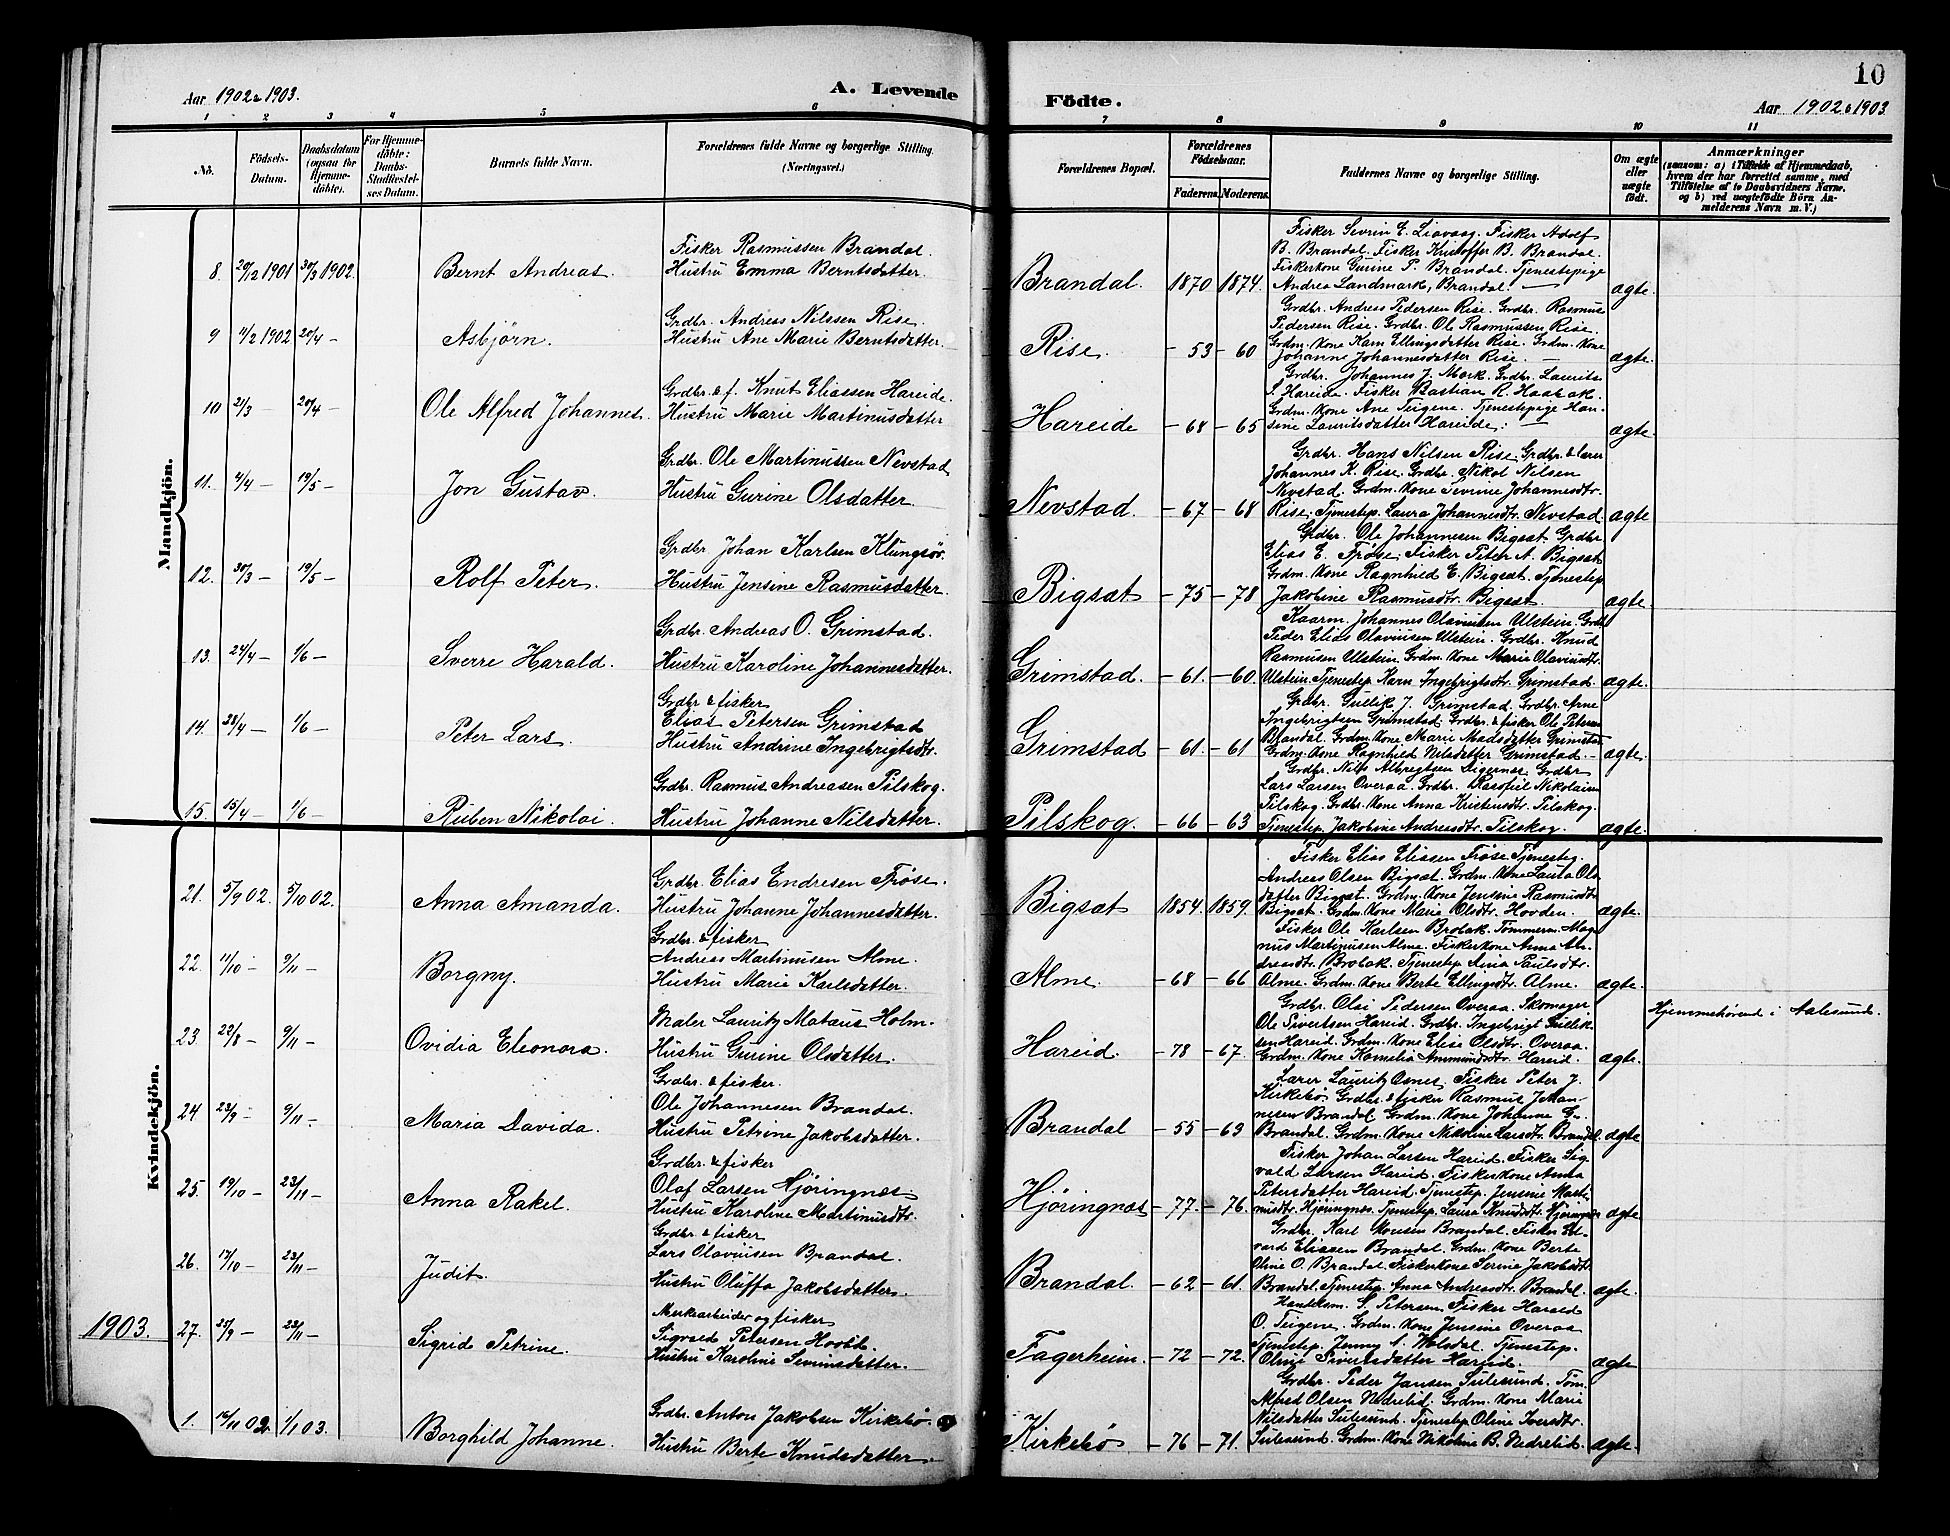 Aar 1902 & 1903.
A. Levende
Födte.
10
Aar 1902 & 1903
1 2 3 4 5 6 7 8 9 10 11
No.
Födsels-Datum.
Daabsdatum (ogsaa for Hjemmedöbte).
For Hjemmedöbte: Daabs-Stadfæstelses Datum.
Barnets fulde Navn.
Forældrenes fulde Navne og borgerlige Stilling. (Næringsvei.)
Forældrenes Bopæl.
Forældrenes Födselsaar.
Faderens. Moderens.
Faddernes Navne og borgerlige Stilling.
Om ægte eller uægte födt.
Anmærkninger
(saasom: a) i Tilfælde af Hjemmedaab, hvem der har forrettet samme, med Tilföielse af to Daabsvidners Navne, og b) ved uægtefödte Börn Anmelderens Navn m. V.)
Mandkjön.
Fisker Rasmussen Brandal.
8. 20/12 1901 30/3 1902. Bernt Andreas. Hustru Emma Berntsdatter.
Brandal. 1870 1874.
Fisker Sevrin E. Liavaag. Fisker Adolf
B. Brandal. Fisker Kristoffer B. Brandal.
Fiskerkone Gurine P. Brandal. Tjenestepige
Andrea Landmark, Brandal. —
ægte.
Grdbr. Andreas Nilssen Rise.
9 11/2 1902 20/4 — Asbjørn. Hustru Ane Marie Berntsdatter.
Rise. — 53 — 60
Grdbr. Andreas Pedersen Rise. Grdbr. Rasmus
Pedersen Rise. Grdbr. Ole Rasmussen Rise.
Grdm. Kone Karn Ellingsdatter Rise. Grdm. Kone
Johanne Johannesdatter Rise. —
ægte.
Grdbr. & f. Knut Eliassen Hareide.
10 21/3 20/4 — Ole Alfred Johannes. Hustru Marie Martinusdatter
Hareide — 68 — 65
Grdbr. Johannes J. Mork. Grdbr. Laurits
S. Hareide. Fisker Bastian R. Haabak.
Grdm. Kone Ane Teigene. Tjenestepige Han-
sine Lauritsdatter Hareide. —
ægte.
Grdbr. Ole Martinussen Nevstad
11. 4/4 — 19/5 — Jon Gustav. Hustru Gurine Olsdatter.
Nevstad. — 67 — 68
Grdbr. Hans Nilsen Rise. Grdbr. & lærer
Johannes K. Rise. Grdbr. Nikol Nilsen
Nevstad. Grdm. Kone Severine Johannesdtr.
Rise. Tjenestep. Laura Johannesdtr. Nevstad.
ægte
Grdbr. Johan Karlsen Klungsör.
12. 30/3 — 19/5 — Rolf Peter. Hustru Jensine Rasmusdatter.
Bigsæt — 75 — 78
Grdbr. Ole Johannesen Bigsæt. Grdbr.
Elias E. Frøse. Fisker Peter A. Bigsæt
Grdm. Kone Ragnhild E. Bigsæt. Tjenestep.
Jakobine Rasmusdtr. Bigsæt.
ægte.
Grdbr. Andreas O. Grimstad.
13. 24/4 — 1/6 — Sverre Harald. Hustru Karoline Johannesdatter.
Grimstad. — 61. — 60.
Kaarm. Johannes Olavinsen Ulstein. Grdb.
Peder Elias Olavinsen Ulstein. Grdbr. Knud
Rasmusen Ulstein. Grdm. Kone Marie Olavinsdtr.
Ulstein. Tjenestep. Karn Ingebrigtsdtr. Grimstad.
ægte.
Grdbr & fisker
14. 28/4 — 1/6 — Peter Lars. Elias Petersen Grimstad
Hustru Andrine Ingebrigtsdtr.
Grimstad — 61 — 61
Grdbr. Gullik J. Grimstad. Grdbr. Arne
Ingebrigtsen Grimstad. Grdbr. & fisker Ole Petersen
Brandal. Grdm. Kone Marie Madsdatter Grimstad
Grdm. Kone Ragnhild Nilsdatter Grimstad.
ægte.
Grdbr. Rasmus Andreasen Pilskog.
15. 15/4 — 1/6 — Ruben Nikolai. Hustru Johanne Nilsdatter.
Pilskog. — 66 — 63
Grdbr. Nils Albregtsen Digernes. Grdbr
Lars Larsen Overaa. Grdbr. Rasofiel Nikolaisen
Pilskog. Grdbr. Kone Anna Kristensdtr. Pilskog.
Tjenestep. Jakobine Andreasdtr. Pilskog.
ægte.
Kvindekjön.
Grdbr. Elias Endresen Frøse.
21. 5/9 02. 5/10 02. Anna Amanda. Hustru Johanne Johannesdatter.
Bigsæt 1854. 1859.
Fisker Elias Elissen Frøse. Tjenesteg.
Andreas Olsen Bigsæt. Grdm. Kone Laura Ols-
datter Bigsæt. Grdm. Kone Jensine Rasmusdtr
Bigsæt. Grdm. Kone Marie Olsdtr. Hovden.
ægte.
Grdbr. & fisker
22. 11/10 — 9/11 — Borgny. Andreas Martinusen Alme.
Hustru Marie Karlsdatter.
Alme. — 68 — 66
Fisker Ole Karlsen Brobak. Tömmerm. Mag-
nus Martinusen Alme. Fiskerkone Anna An-
dreasdtr. Brobak. Tjenestep. Anna Paulsdtr.
Alme. Grdm. Kone Berte Ellingsdtr. Alme.
ægte.
Maler Lauritz Mataus Holm.
23. 22/8 — 9/11 — Ovidia Eleonora. Hustru Gurine Olsdatter.
Hareid. — 78 — 67.
Grdbr. Olai Pedersen Overaa. Skomager
Ole Sivertsen Hareid. Grdbr. Ingebrigt Gullik-
sen Hareid. Grdm. Kone Elise Olsdtr. Overaa.
Grdm. Kone Kornelia Ammundsdtr. Hareid.
ægte.
Hjemmehörend i Aalesund.
Grdbr. & fisker.
24 23/9 — 9/11 — Maria Davida. Ole Johannesen Brandal.
Hustru Petrine Jakobsdatter.
Brandal — 55 — 63
Lærer Lauritz Osnes, Fisker Peter J.
Kirkebø Grdbr. & fisker Rasmus Johan-
nesen Brandal. Grdm. Kone Johanne G.
Brandal. Grdm. Kone Nikoline Larsdtr. Brandal.
ægte
Grdbr. & fisker
25. 19/10 — 23/11 — Anna Rakel. Olaf Larsen Hjøringnæs.
Hustru Karoline Martinusdtr.
Hjøringnæs — 77. — 76.
Fisker Johan Larsen Hareid. Fisker Sig-
vald Larsen Hareid. Fiskerkone Anna
Petersdatter Hareid. Tjenestep. Jensine Marti-
nusdtr. Hjøringnes. Tjenestep. Laura Knudsdtr. Hjøringnes
ægte
Grdbr. & fisker
26. 17/10 — 23/11 — Judit. Lars Olavinsen Brandal.
Hustru Oluffa Jakobsdatter.
Brandal — 62 — 61.
Grdbr. Karl Monsen Brandal. Fisker Ed-
vard Eliasen Brandal. Grdm. Kone Berte
Oline O. Brandal. Fiskerkone Serine Jakobsdtr.
Brandal. Tjenestep. Anna Andreasdtr. Brandal.
ægte.
Merkearbeider og fisker
1903. 27. 25/9 — 23/11 — Sigrid Petrine. Sigvald Petersen Hovlid.
Hustru Karoline Sevrinsdatter.
Fagerheim. — 72 — 72.
Handelsm. S. Petersen. Fisker Harald
O. Teigene. Grdm. Kone Jensine Overaa
Tjenestep. Jenny A. Molsdal. Tjenestep.
Oline Sivertsdatter Hareid.
ægte
Grdbr. Anton Jakobsen Kirkebø.
1. 16/11 02. 1/1 03. Borghild Johanne. Hustru Berte Knudsdatter.
Kirkebø — 76 — 71.
Grdbr. Peder Jansen Sulesund. Töm.
Alfred Olsen Nedrelid. Grdm. Kone Marie
Nilsdatter Sulesund. Tjenestep. Oline Iversdtr.
Sulesund. Grdm. Kone Nikoline B. Nedrelid.
ægte.